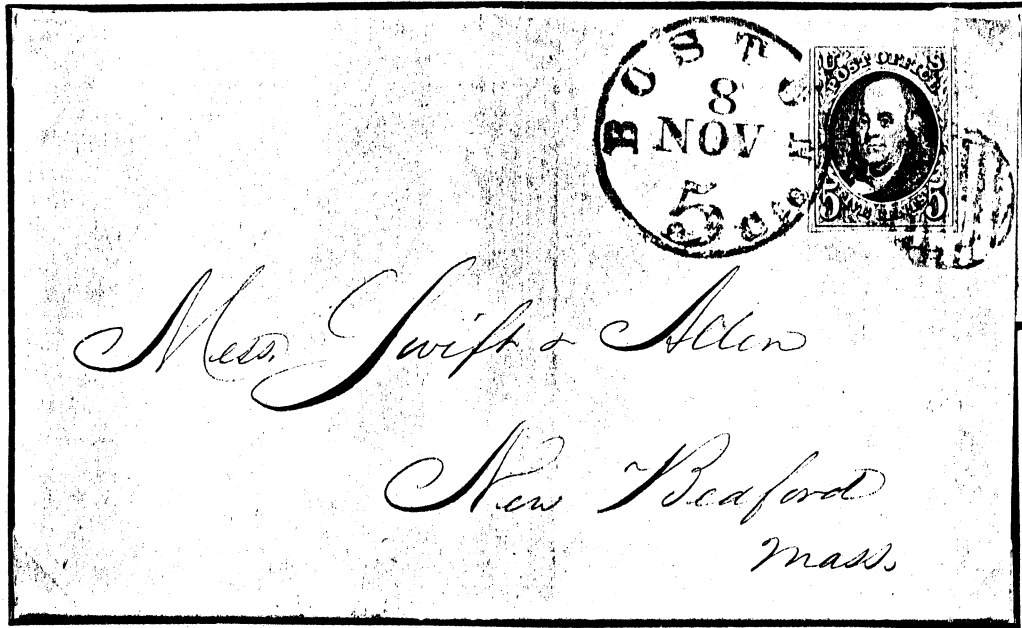 BOSTON
8
NOV
5
U S
POST OFFICE
5 FIVE CENTS 5
Mess. Swift & Allen
New Bedford
Mass.